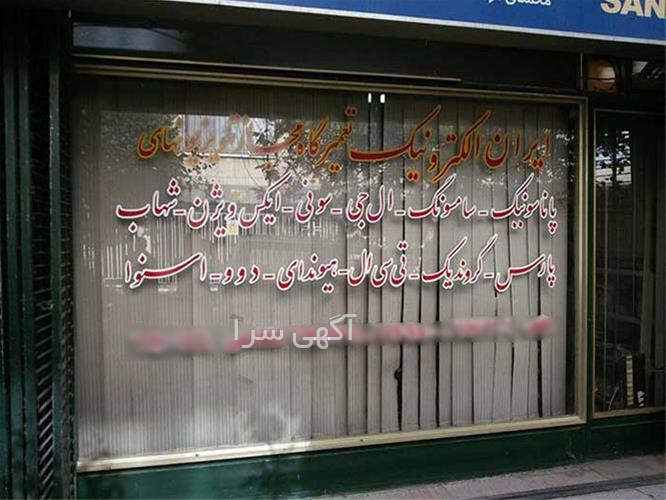 SAN
ایران الکترونیک تعمیرگاه مجاز تلویزیونهای
پاناسونیک - سامسونگ - ال جی - سونی - ایکس ویژن - شهاب
پارس - گروندیک - تی سی ال - هیوندای - دوو - اسنوا
آگهی سرا